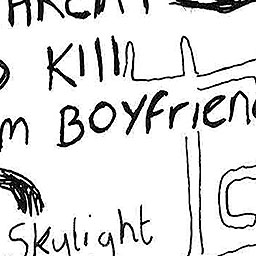 Kill
m BOYfrien
Skylight